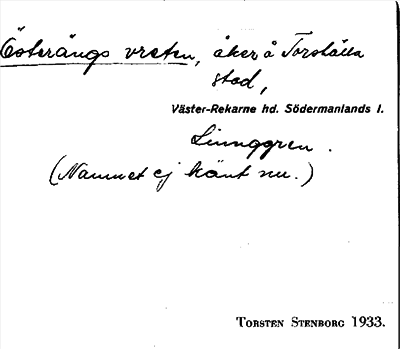 Österängs vreten, åker å Torshälla
stad,
Väster-Rekarne hd. Södermanlands l.
Linnggren.
(Namnet ej känt nu.)
TORSTEN STENBORG 1933.